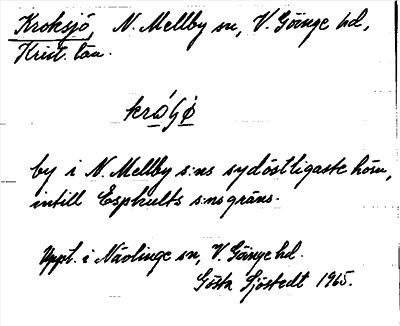 Kroksjö, N. Mellby sn, V. Göinge hd,
Krist. län.
by i N. Mellby s:ns sydöstligaste hörn,
intill Esphults s:nsgräns.
Uppt. i Nävlinge sn, V. Göinge hd.
Gösta Sjöstedt 1965.